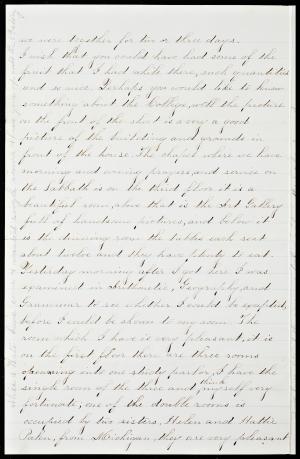 we were together for two or three days.
I wish that you could have had some of the
fruit that I had while there, such quantities
and so nice. Perhaps you would like to know
something about the College, well the picture
on the front of the sheet is a very good
picture of the building and grounds in
front of the house. The chapel where we have
morning and evening prayers, and service on
the Sabbath is on the third floor it is a
beautiful room, above that is the Art Gallery
full of handsome pictures, and below it
is the dinning room the tables each seat
about twelve and they have plenty to eat.
Yesterday morning after I got here I was
examined in Arithmetic, Geography, and
Grammar to see whether I could be excepted,
before I could be shown to my room. The
room which I have is very pleasant, it is
on the first floor there are three rooms
openning into one study parlor, I have the
single room of the three and think myself very
fortunate, one of the double rooms is
occupied by two sisters, Helen and Hattie
from Michigan, they are very pleasant